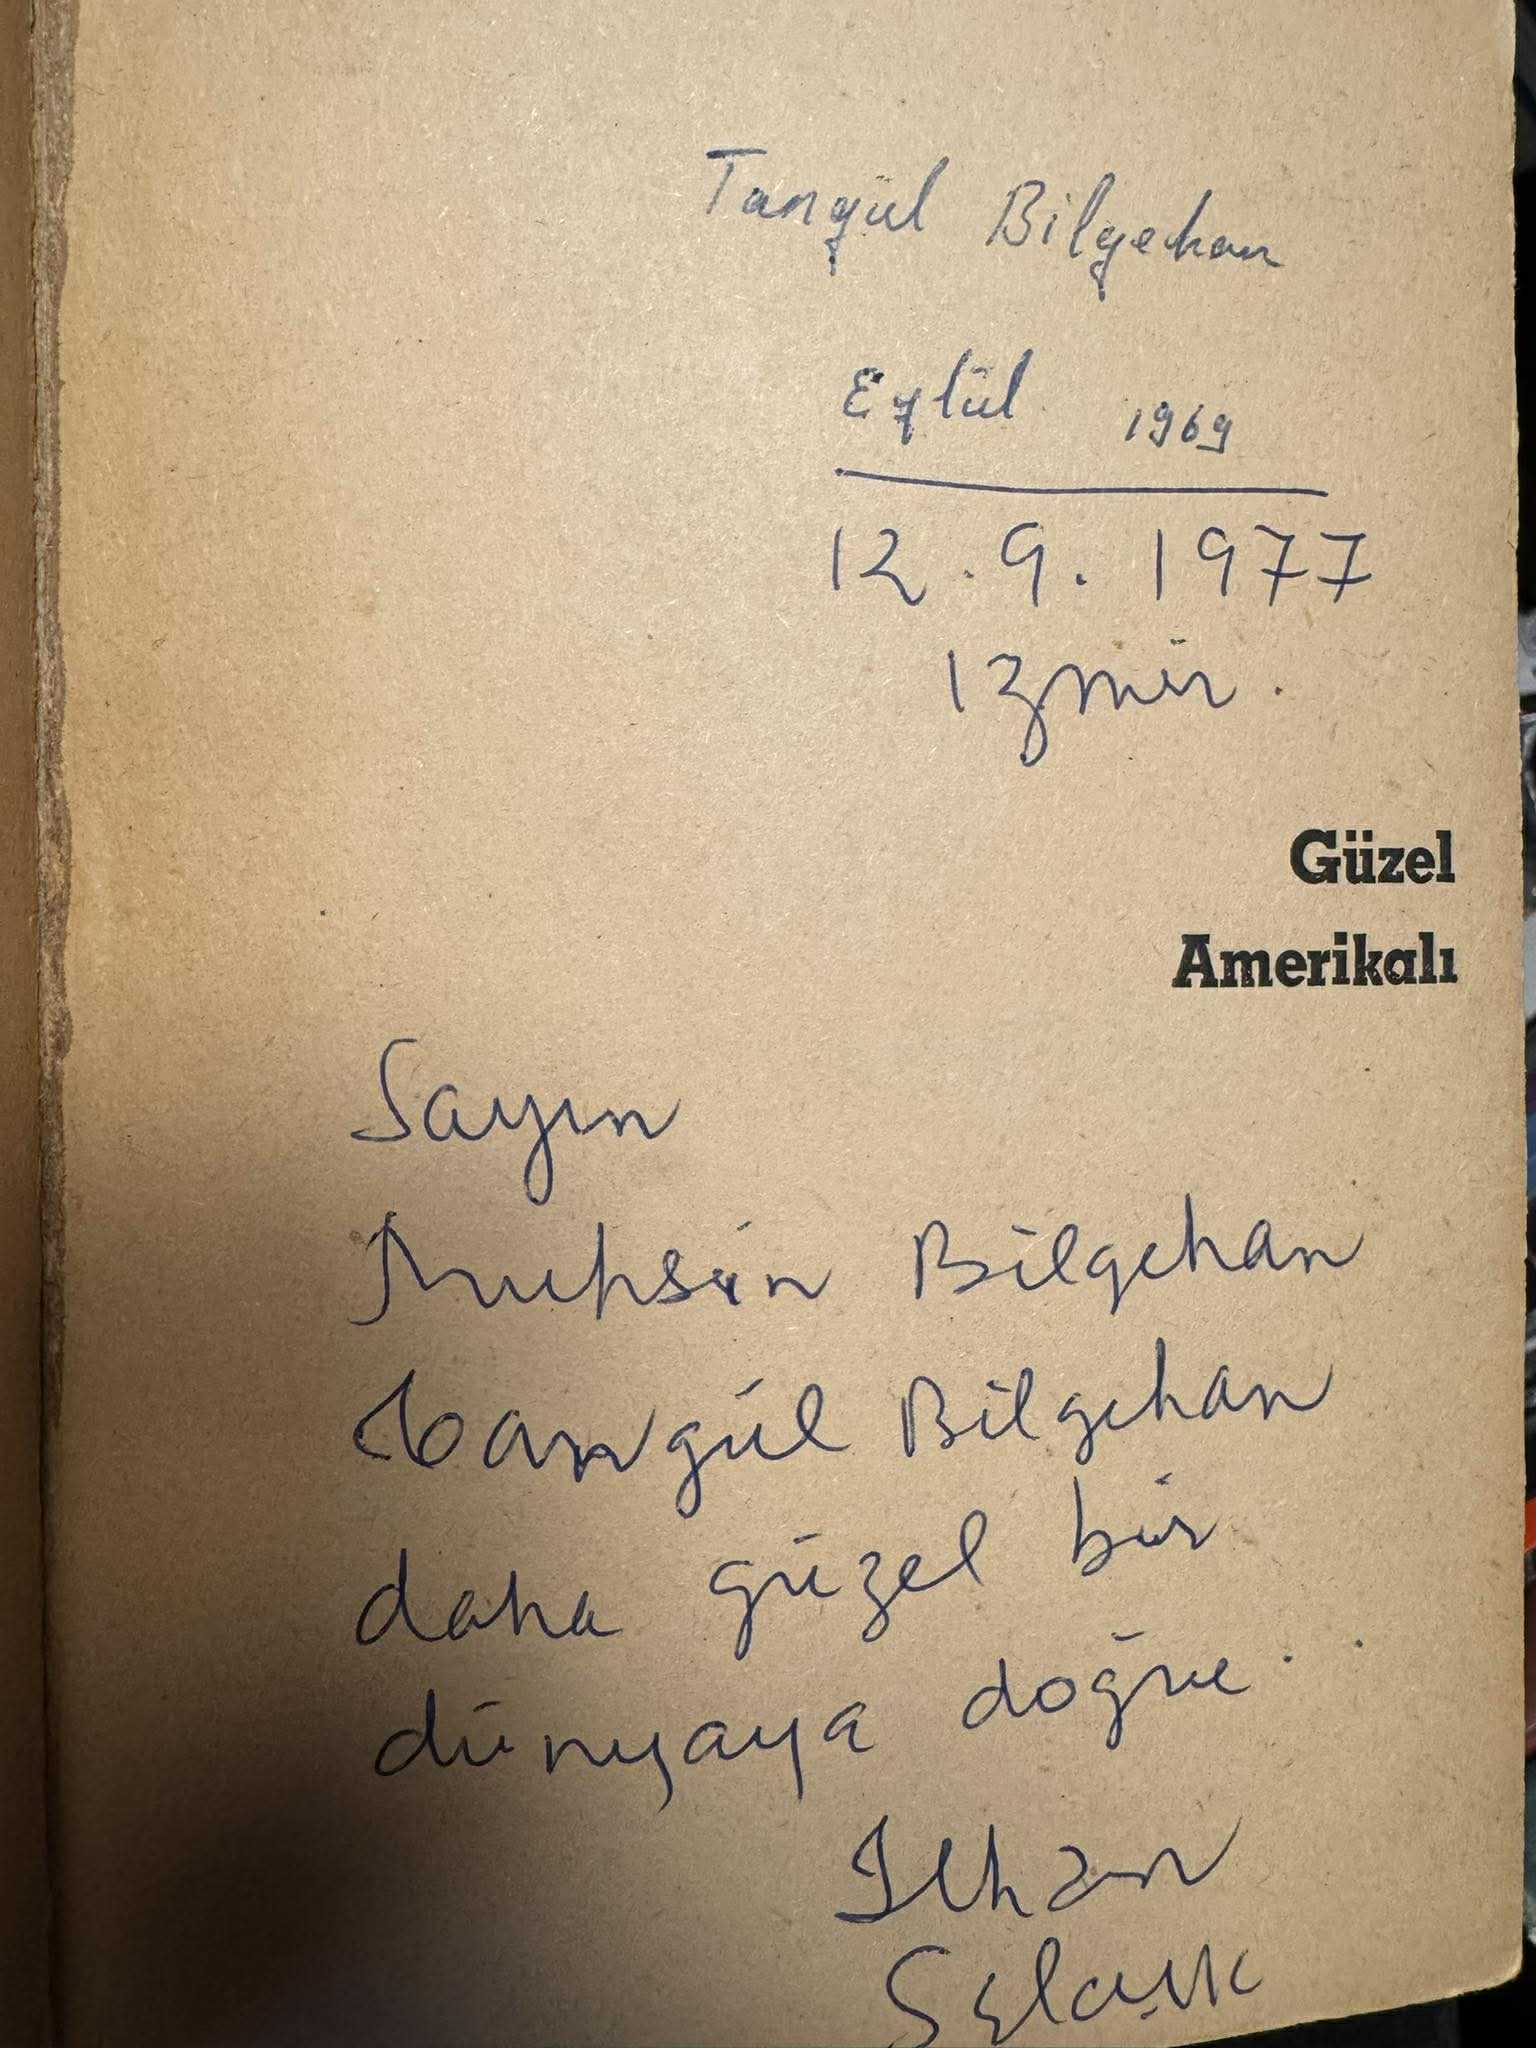 Tangül Bilgehan
Eylül 1969
12.9.1977
Izmir.
Güzel
Amerikalı
Sayın
Muhsin Bilgehan
Tangül Bilgehan
daha güzel bir
dünyaya doğru..
Ilhan
Selçuk